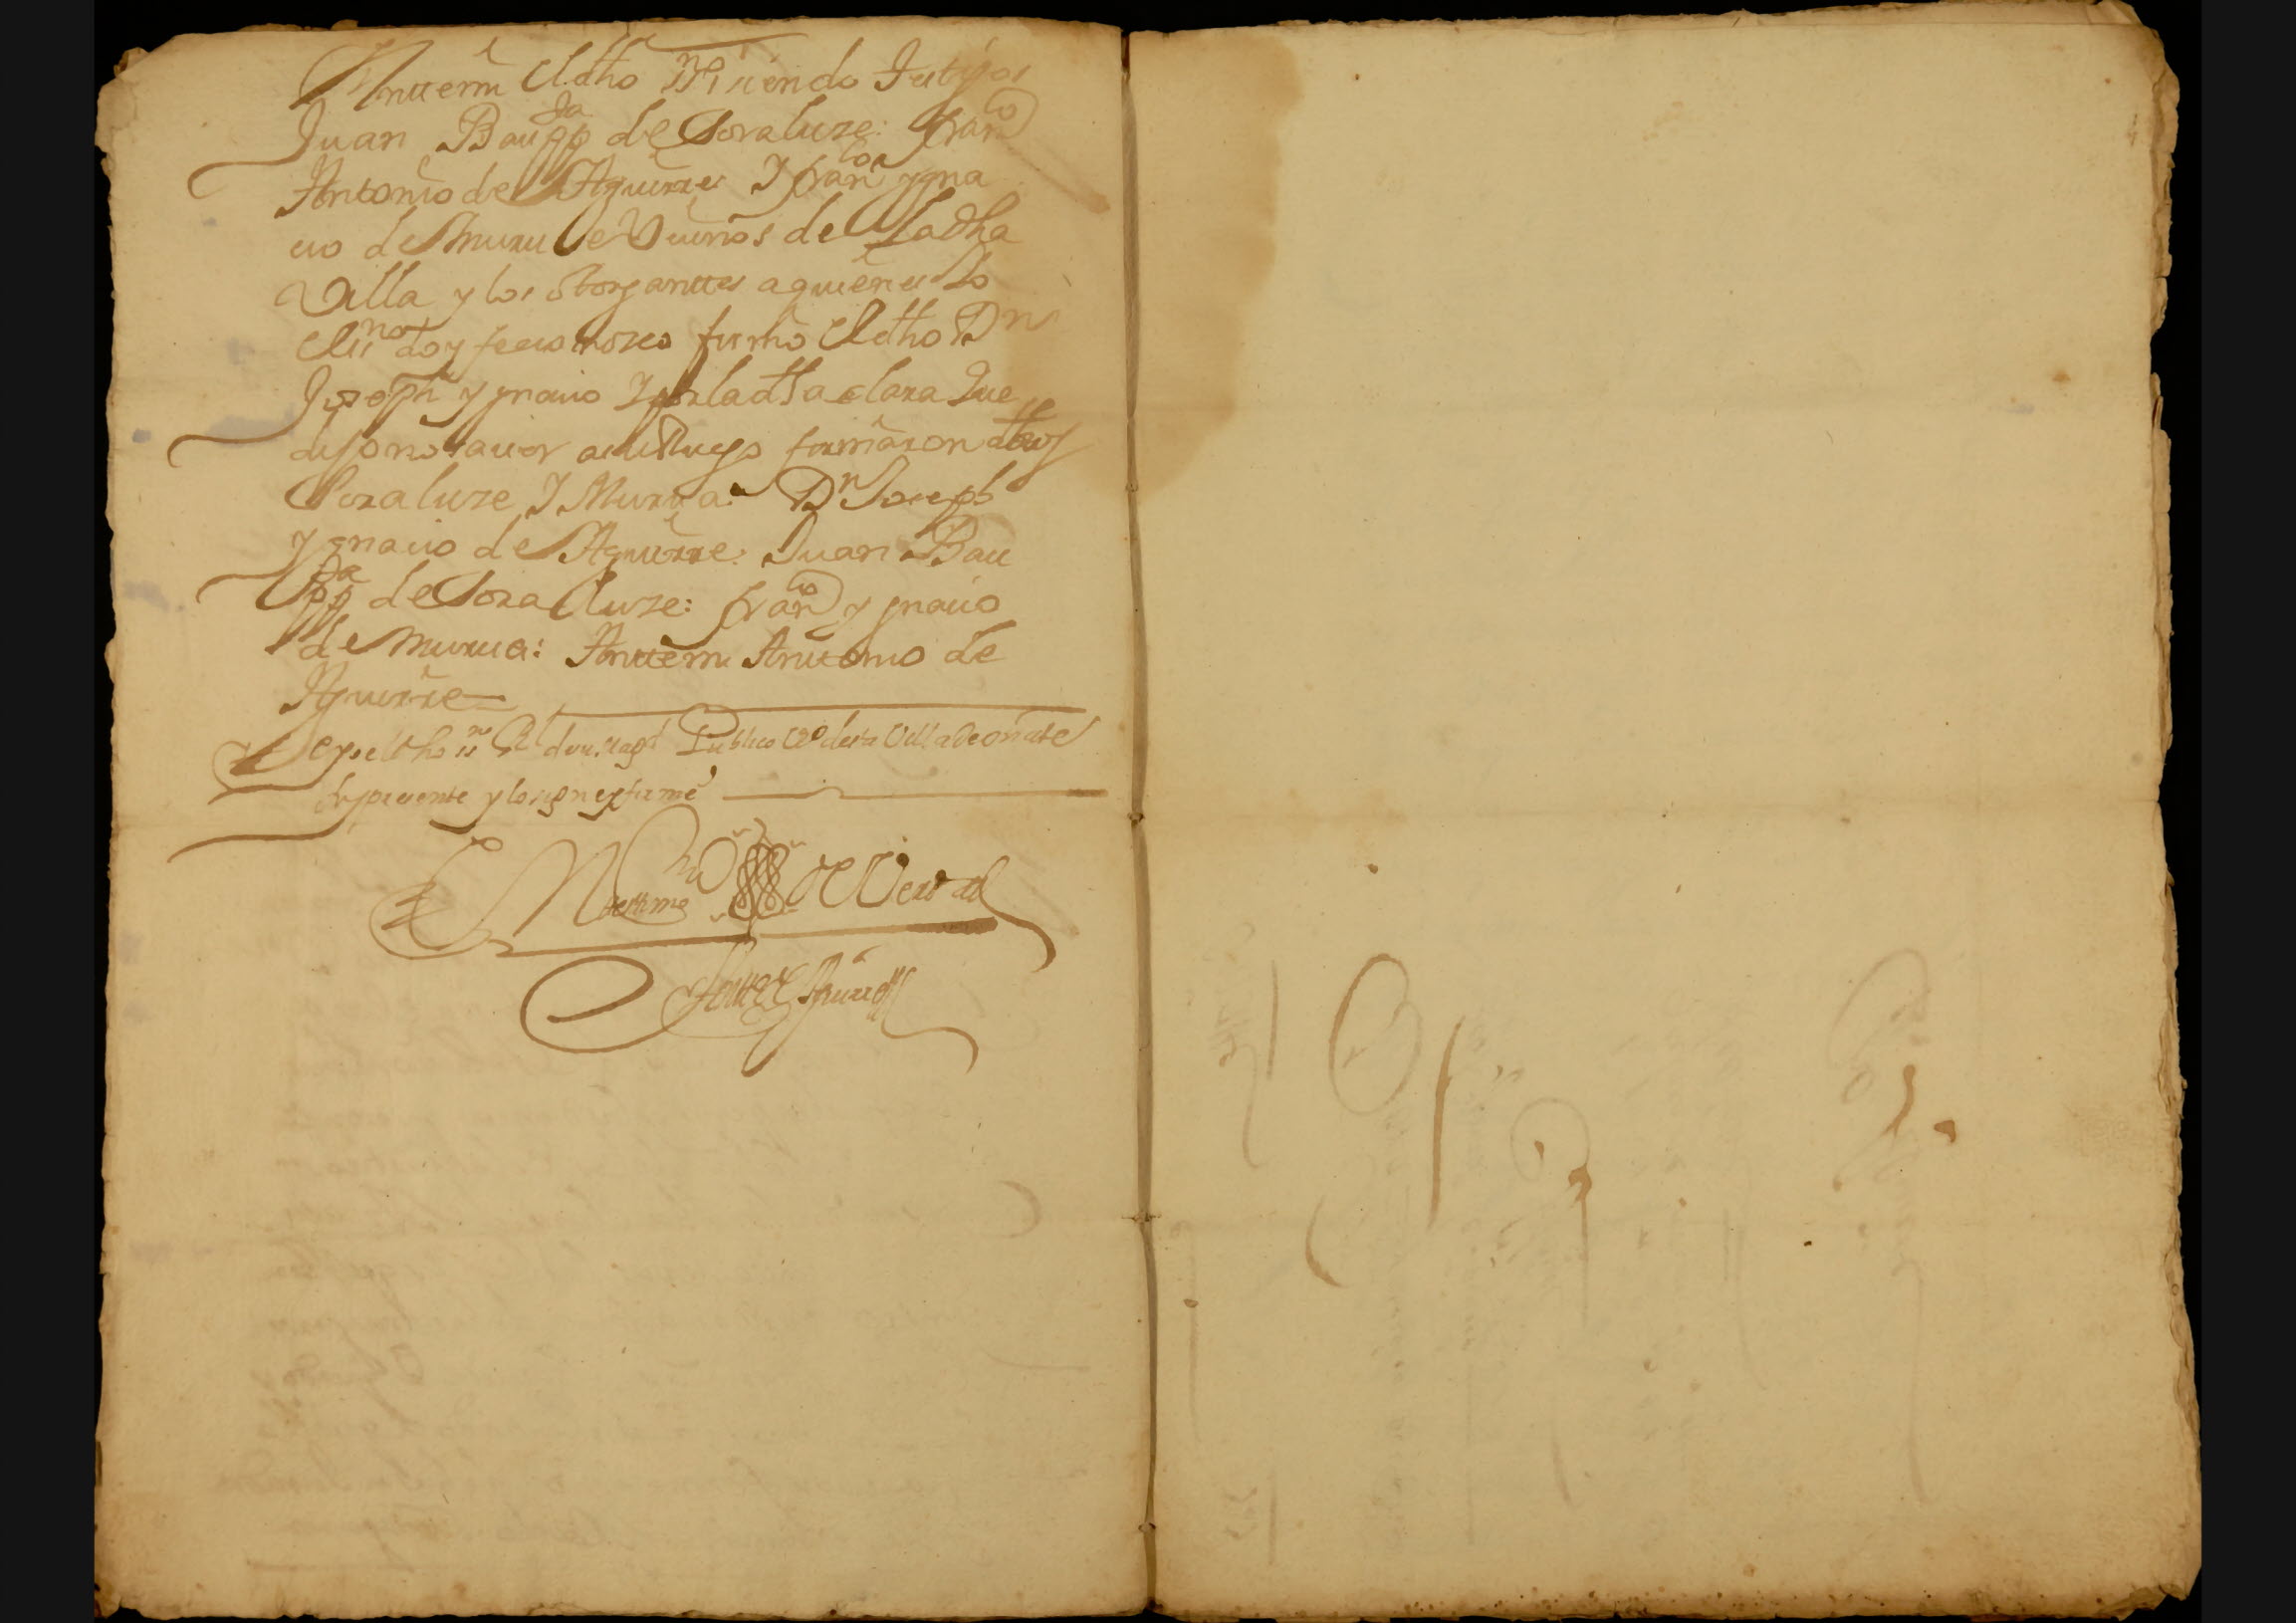 Anttemi el dho ssno siendo testigos
Juan Bauptta de Soraluze: Franco
Antonio de Aguirre Y Franco ygna
cio de Murua Vecinos de la dha
Villa y los otorganttes a quienes Yo
el ssno doy fee conozco firmo el dho Dn
Joseph ygnacio Y por la dha clara que
dijo no saver a su Ruego firmaron dhos
Soraluze Y Murua: Dn Joseph
ygnacio de Aguirre: Juan Bau
ptta de Soraluze: Franco ygnacio
de Murua: Anttemi Antonio de
Aguirre
E yo el dho ssno Rl Publico no desta Villa de oñate
fuy presente y lo signe y firme
En testimo de Verdad
Antto de Aguirre